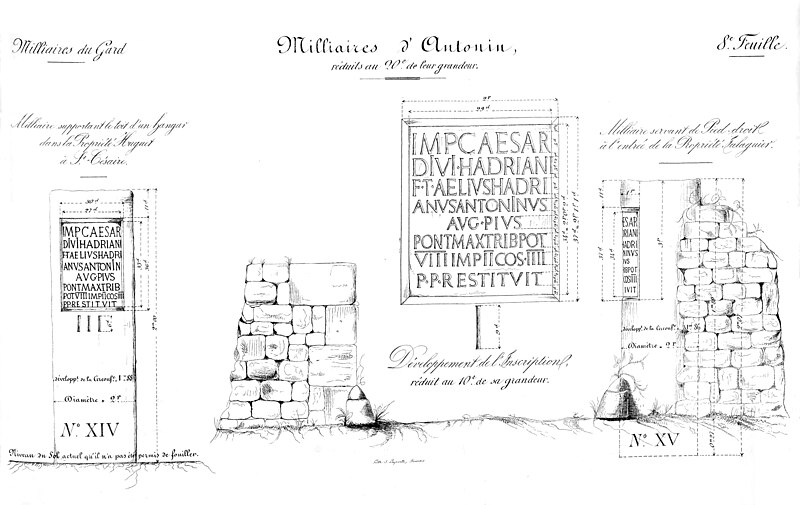 Milliaires du Gard
Milliaires d'Antonin,
réduits au 20e. de leur grandeur.
8e. Feuille.
Milliaire supportant le toit d'un hangar
dans la Propriété Huguet
à St. Césaire.
IMP CAESAR
DIVI·HADRIANI
F·T·AELIVS HADRI
ANVS ANTONIN
AVG PIVS
PONT MAX TRIB
POT VIIII IMP II COS IIII
P·P RESTITVIT
III
Développt. de la Circonfce.
Diamètre = 2P.
No. XIV
Niveau du Sol actuel qu'il n'a pas été permis de fouiller.
9P.
99d.
IMP CAESAR
DIVI·HADRIANI
F·T·AELIVS HADRI
ANVS ANTONINVS
AVG·PIVS
PONT MAX TRIB POT
VIIII IMP II COS·IIII
P·P·RESTITVIT
Développement de l'Inscription,
réduit au 10e. de sa grandeur.
Milliaire servant de Pied-droit
à l'entrée de la Propriété Salaguier.
ESAR
DRIANI
HADRI
VS
RIB POT
IIII
IVIT
Développt. de la Circonfce.
Diamètre = 2P.
No. XV